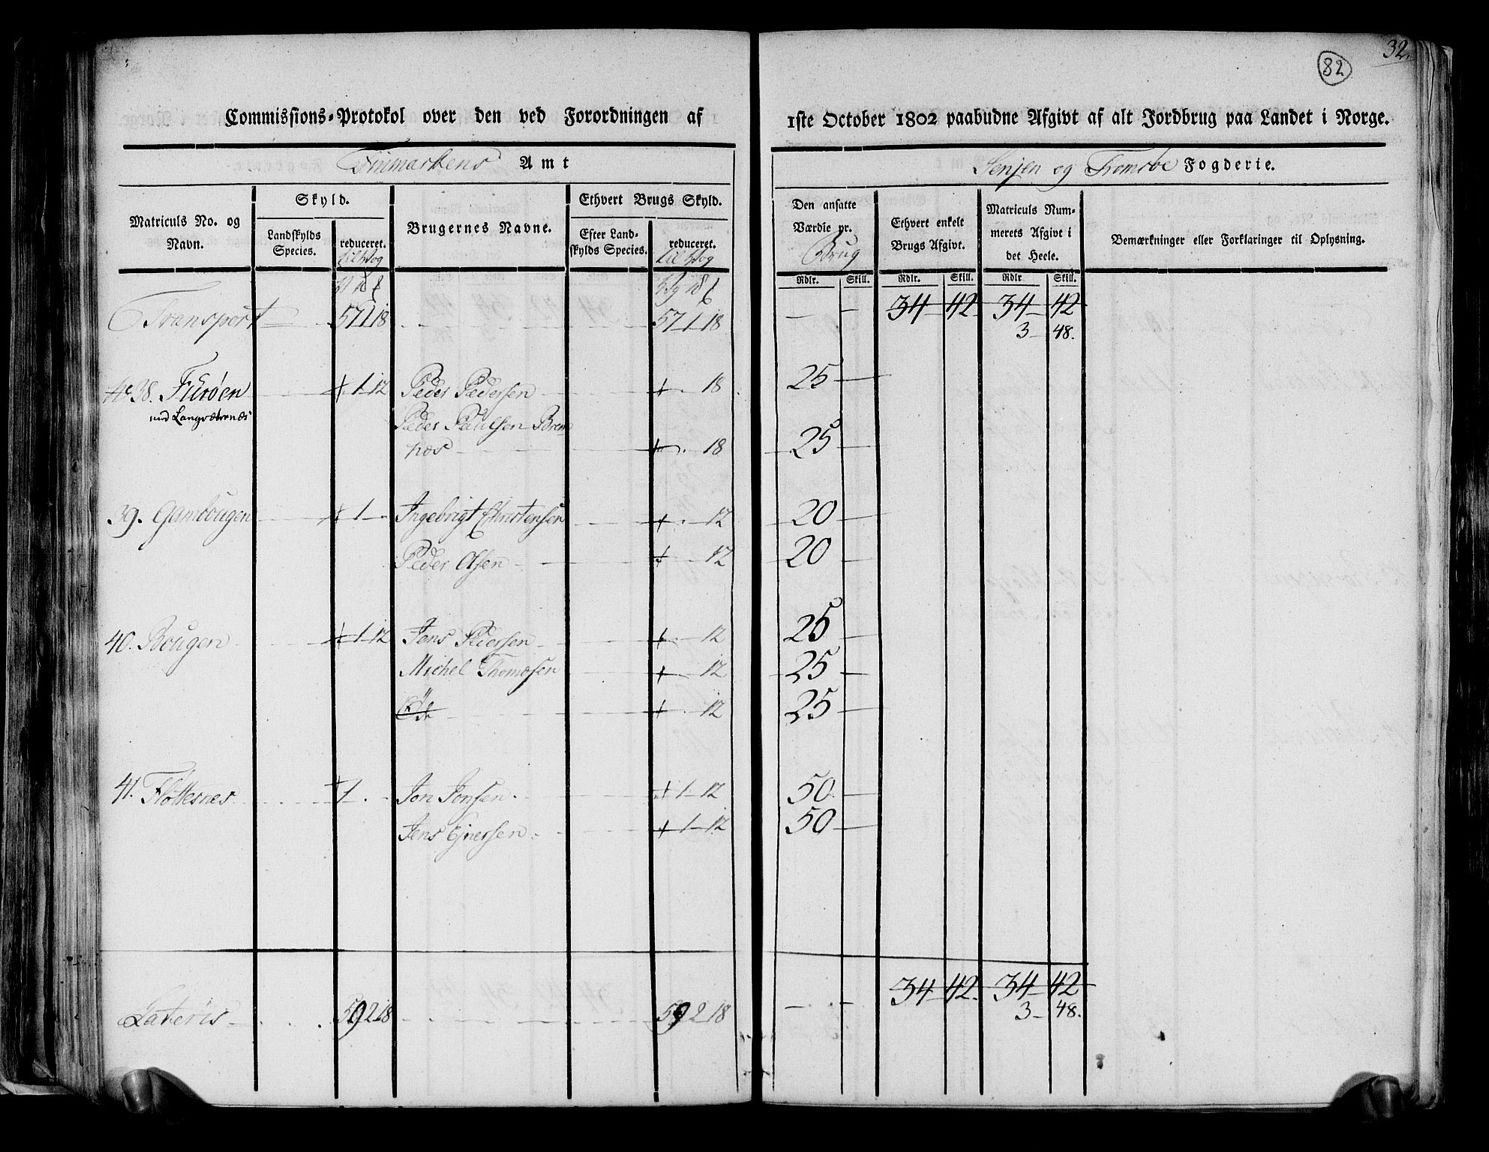 82
32.
Commissions-Protokol over den ved Forordningen af 1ste October 1802 paabudne Afgivt af alt Jordbrug paa Landet i Norge.
Finmarkens Amt
Senjen og Tromsøe Fogderie.
Matriculs No. og Navn.
Skyld.
Landskylds Species.
reduceret.
Brugernes Navne.
Ethvert Brugs Skyld.
Efter Landskylds Species.
reduceret.
Den ansatte Værdie pr. Brug
Rdlr. Skill.
Ethvert enkelt Brugs Afgivt.
Rdlr. Skill.
Matriculs Nummerets Afgivt i det Heele.
Rdlr Skill.
Bemærkninger eller Forklaringer til Oplysning.
Transport 57 1 18 57 1 18 34 42 34 42
3 48.
38. 1 12 Peder Pedersen 18 25
ved Langvatnnæs
Peder Paulsen
18 25
39. Gambougen 1 Ingebrigt Christensen 12 20
Peder Olsen 12 20
40. Bougen 1 12 Jens Pedersen 12 25
Michel Thomesen 12 25
Öde 12 25
41. Flöttesnæs 1 Jon Jonsen 1 12 50
Jens Ejnersen 1 12 50
Lateris 59 2 18 59 2 18 34 42 34 42
3 48.